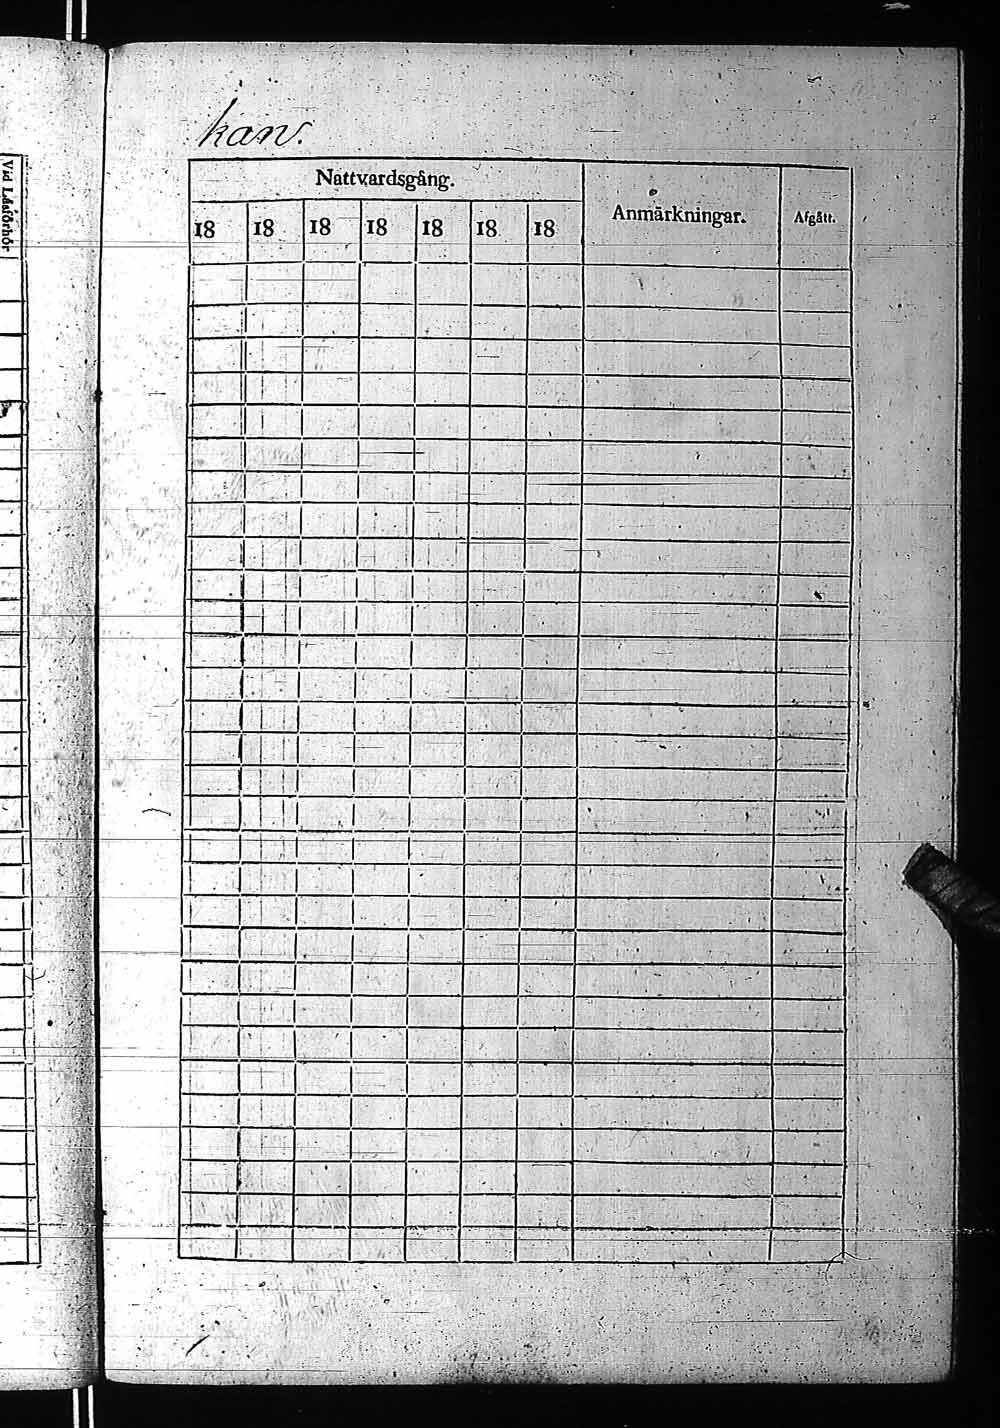 kan.
Vid Läsförhör
Nattvardsgång.
Anmärkningar.
Afgått.
18 18 18 18 18 18 18